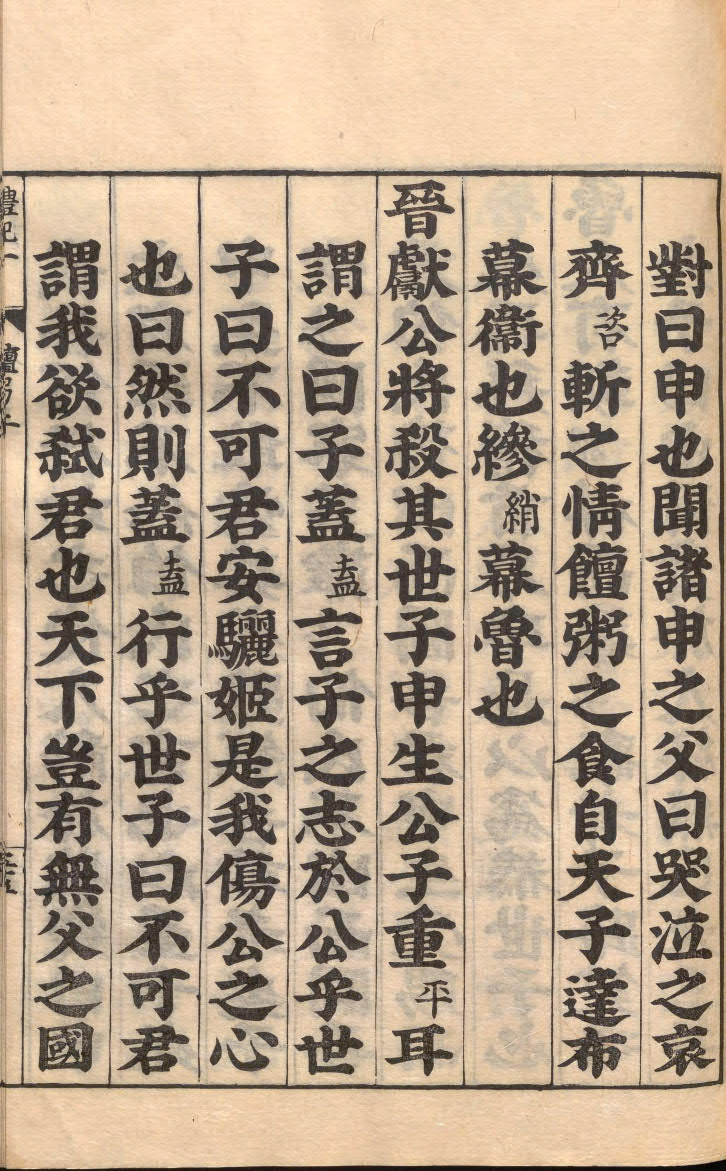 對曰申也聞諸申之父曰哭泣之哀
齊咨斬之情饘粥之食自天子達布
幕衞也縿綃幕魯也
晉獻公將殺其世子申生公子重平耳
謂之曰子蓋盍言子之志於公乎世
子曰不可君安驪姬是我傷公之心
也曰然則蓋盍行乎世子曰不可君
謂我欲弑君也天下豈有無父之國
禮記一
檀弓上